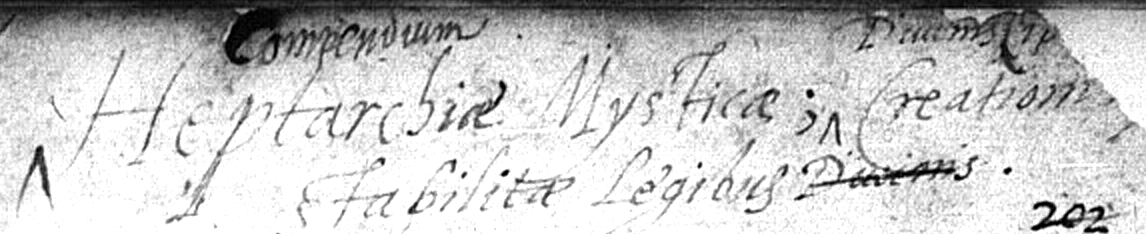 Compendium Diuinis
Heptarchiæ Mysticæ; ^ Creationis
^ stabilitæ Legibus Diuinis.
202